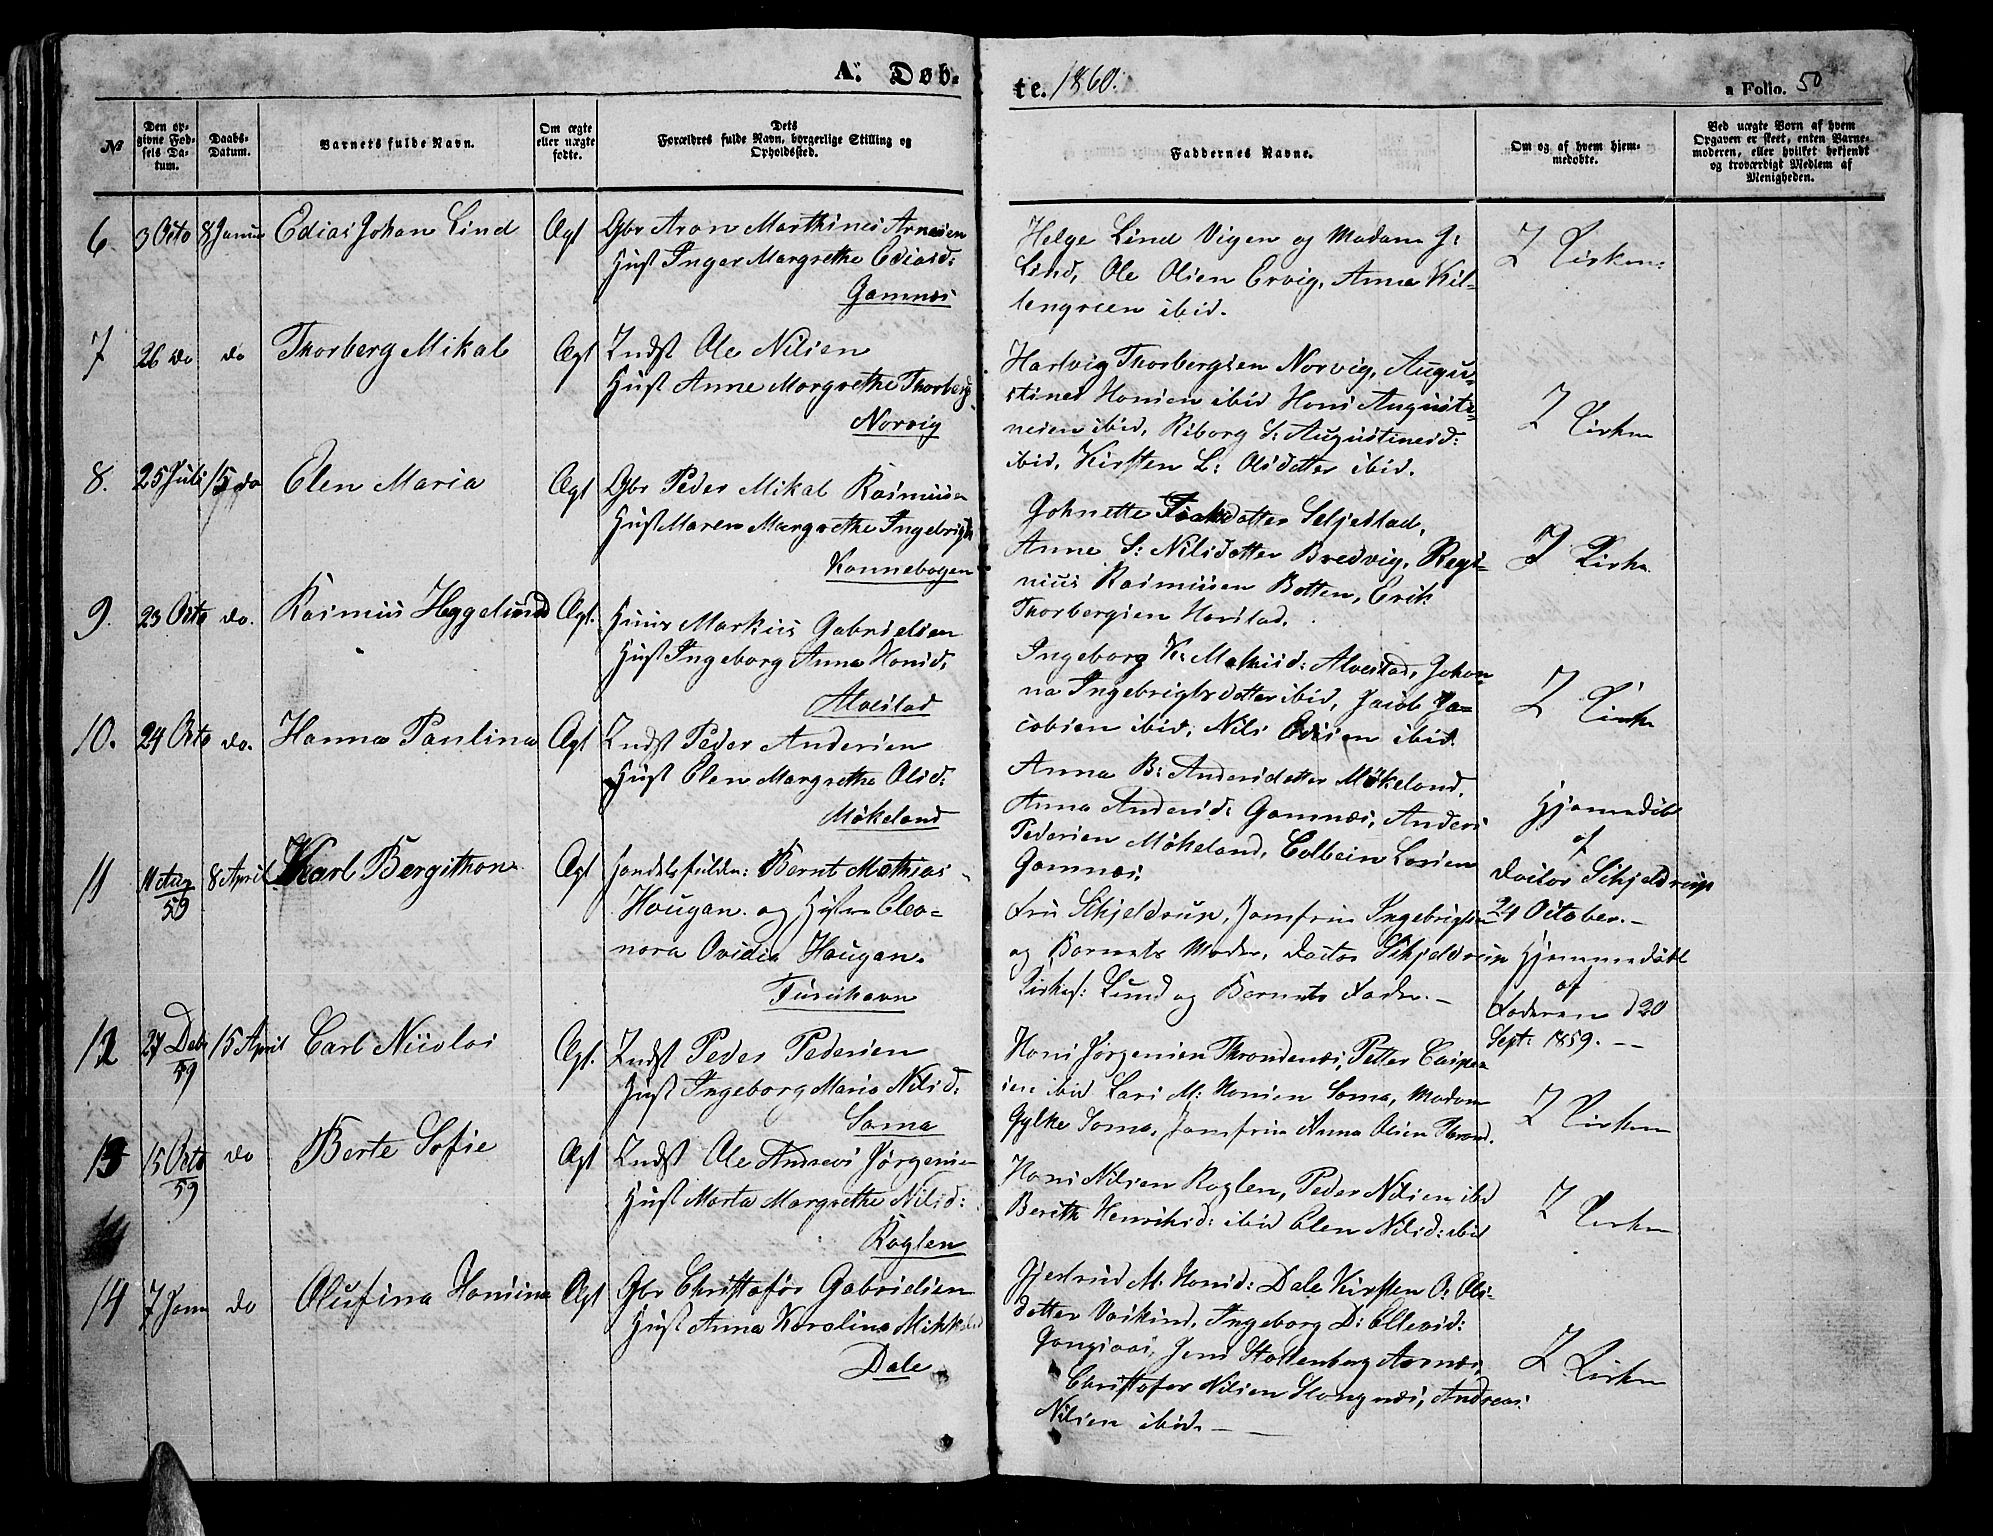 A. Døb-
te. 1860.
a Folio. 50
№
Den op-
givne Fød-
sels Da-
tum.
Daabs-
Datum.
Barnets fulde Navn.
Om ægte
eller uægte
fødte.
Dets
Forældres fulde Navn, borgerlige Stilling og
Opholdssted.
Faddernes Navne.
Om og af hvem hjem-
medøbte.
Ved uægte Børn af hvem
Opgaven er skeet, enten Barne-
moderen, eller hvilket bekjendt
og troværdigt Medlem af
Menigheden.
6 3 Octo 8 Januar Edias Johan Lind Ægt Gbr Aron Marthines Arnesen
Hust Inger Margrethe Ediasd:
Gamnæs
Helge Lind Vigen og Madam J:
Lind, Ole Olsen Ervig, Anna Kil-
lengreen ibid.
I Kirken:
7 26 do do Thorberg Mikal Ægt Indst Ole Nilsen
Hust Anne Margrethe Thorberg
Norvig
Hartvig Thorbergsen Norvig, Augu-
stines Hansen ibid Hans Augusti-
nesen ibid, Riborg S: Augustinesd:
ibid, Kirsten L: Olsdatter ibid.
I Kirken
8. 25 Juli 15 do Elen Maria Ægt Gbr Peder Mikal Rasmusen
Hust Maren Margrethe Ingebrigts
Kannebogen
Johnette Isaksdatter Seljestad,
Anne S: Nilsdatter Bredvig, Regi-
nius Rasmusen Botten, Erik
Thorbergsen Harstad.
I Kirken
9. 23 Octo do. Rasmus Heggelund Ægt. Huus Markus Gabrielsen
Hust Ingeborg Anna Hansd.
Alvestad
Ingeborg K: Mathisd: Alvestad, Johan-
na Ingebrigtsdatter ibid, Jacob Ja-
cobsen ibid, Nils Olsen ibid
I Kirken
10. 24 Octo do. Hanna Paulina Ægt Indst Peder Andersen
Hust Elen Margrethe Olsd:
Møkeland
Anna B: Andersdatter Møkeland,
Anna Andersd: Gamnæs, Anders
Pedersen Møkeland, Colbein Larsen
Gamnæs,
Hjemmedøbt
af
Doctor Schjeldrup
24 October. -
11 11 Aug/59 8 April Karl Bergithon Ægt Handelsfuldm: Bernt Mathias
Hougan. og Hustru Eleo-
nora Ovidia Haugan.
Furuhavn
Fru Schjeldrup, Jomfru Ingebrigtsen
og Barnets Moder, Doctor Schjeldrup
Kirkes: Lund og Barnets Fader. -
Hjemmedøbt
af
Faderen d 20
Sept. 1859. --
12 27 Debr/59 15 April Carl Nicolai Ægt. Indst Peder Pedersen
Hust Ingeborg Maria Nilsd:
Sama
Hans Jørgensen Throndenæs, Petter Casper
sen ibid Lars M: Hansen Sama, Madam
Gylke Sama, Jomfru Anna Olsen Thrond.
I Kirken
13 15 Octo/59 do Berte Sofie Ægt Indst Ole Andreas Jørgensen
Hust Marta Margrethe Nilsd:
Røglen
Hans Nilsen Røglen, Peder Nilsen ibid
Berith Henriksd: ibid Elen Nilsd: ibid
I Kirken
14 7 Janu do Olufina Hansina Ægt Gbr Christofor Gabrielsen
Hust Anna Karolina Mikkelsd
Dale
Gjertrud M: Hansd: Dale Kirsten O: Ols-
datter Vaskind, Ingeborg D: Ellevsd:
Gangsaas, Jens Stoltenberg Aarnæs,
Christofer Nilsen Stangnæs, Andreas
Nilsen ibid. -
I Kirken